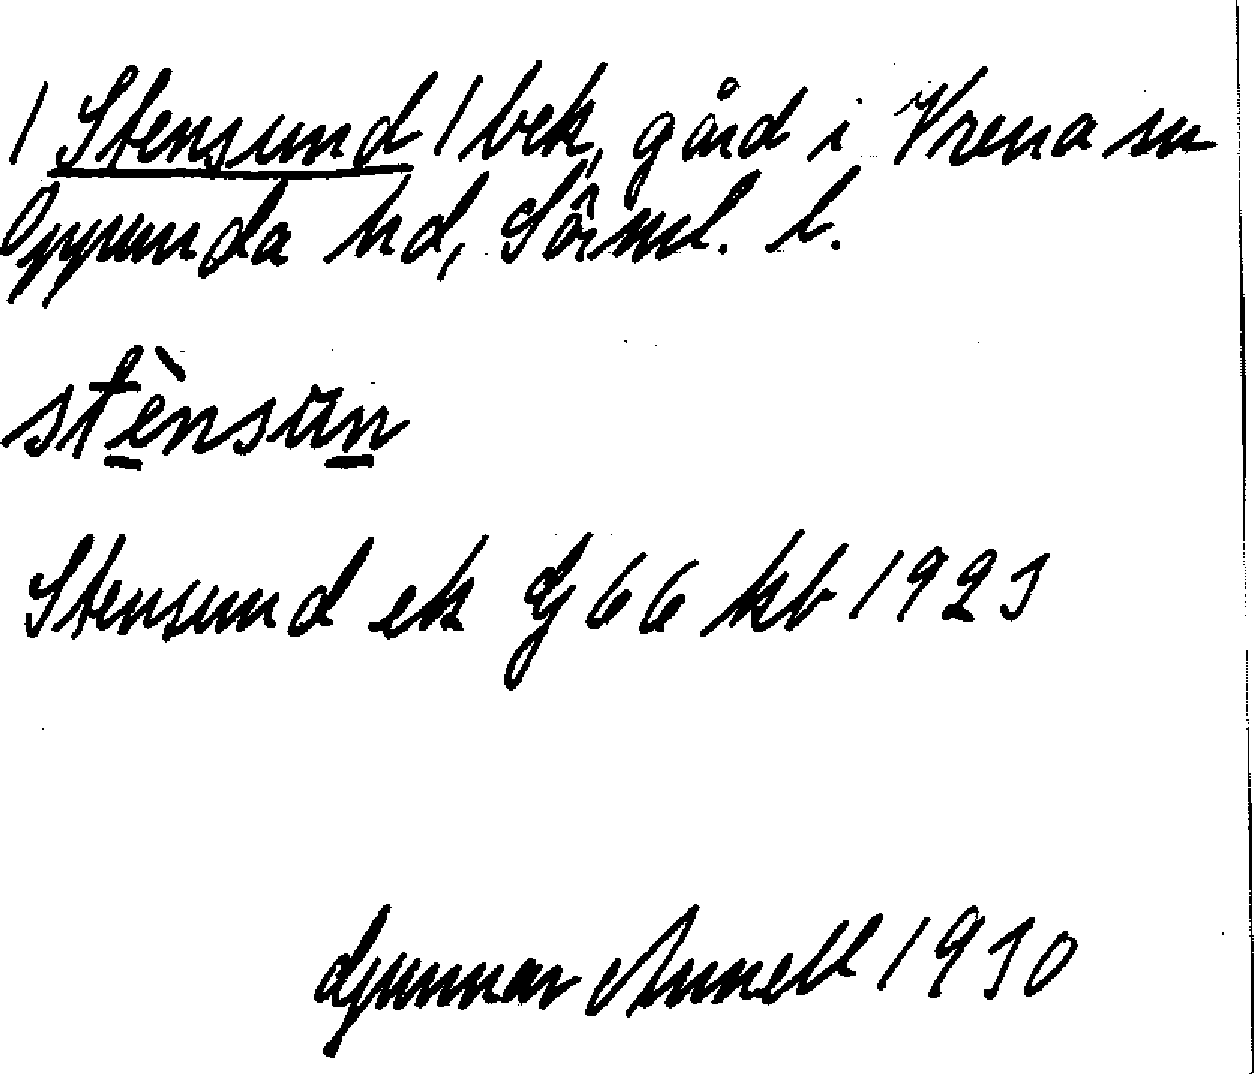 / Stensund / bek, gård i Vrena sn
Oppunda hd, Sörml. l.
stènsun
Stensund ek Gj 66 kb 1925
Gunnar Annell 1930